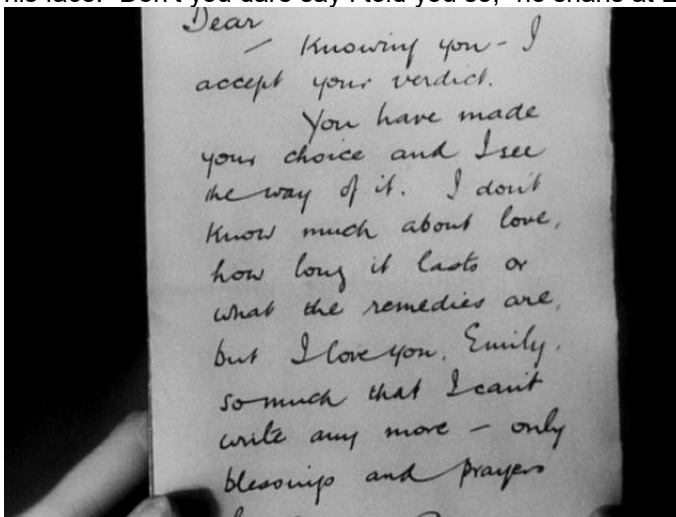 his face. "Don't you dare say I told you so," he snarls at
Dear
– Knowing you – I
accept your verdict.
You have made
your choice and I see
the way of it. I don't
know much about love,
how long it lasts or
what the remedies are,
but I love you, Emily,
so much that I can't
write any more – only
blessings and prayers